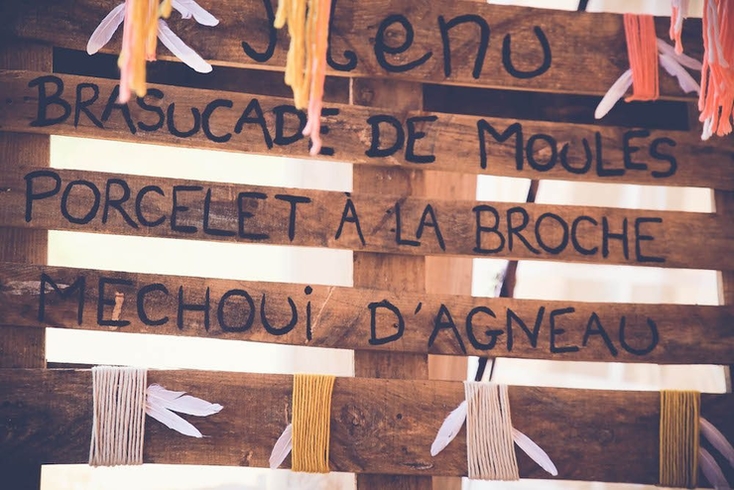 Menu
BRASUCADE DE MOULES
PORCELET À LA BROCHE
MECHOUi D'AGNEAU